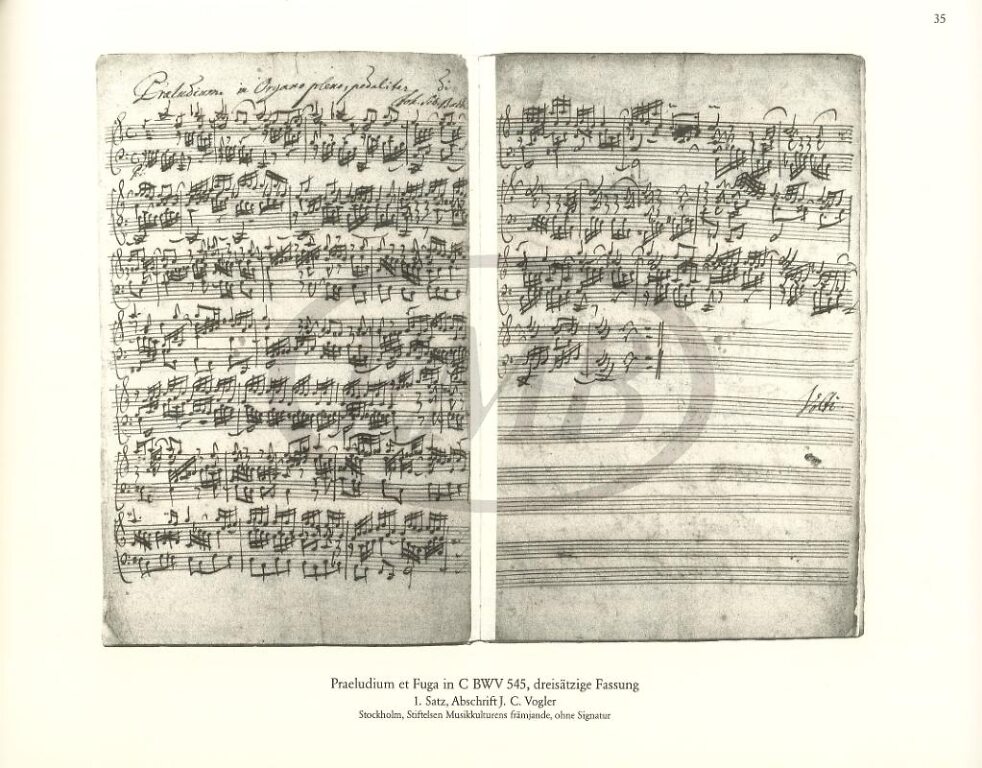 35
Praeludium in Organo pleno, pedaliter
Di
Joh. Seb. Bach
Volti
Praeludium et Fuga in C BWV 545, dreisätzige Fassung
1. Satz, Abschrift J. C. Vogler
Stockholm, Stiftelsen Musikkulturens främjande, ohne Signatur